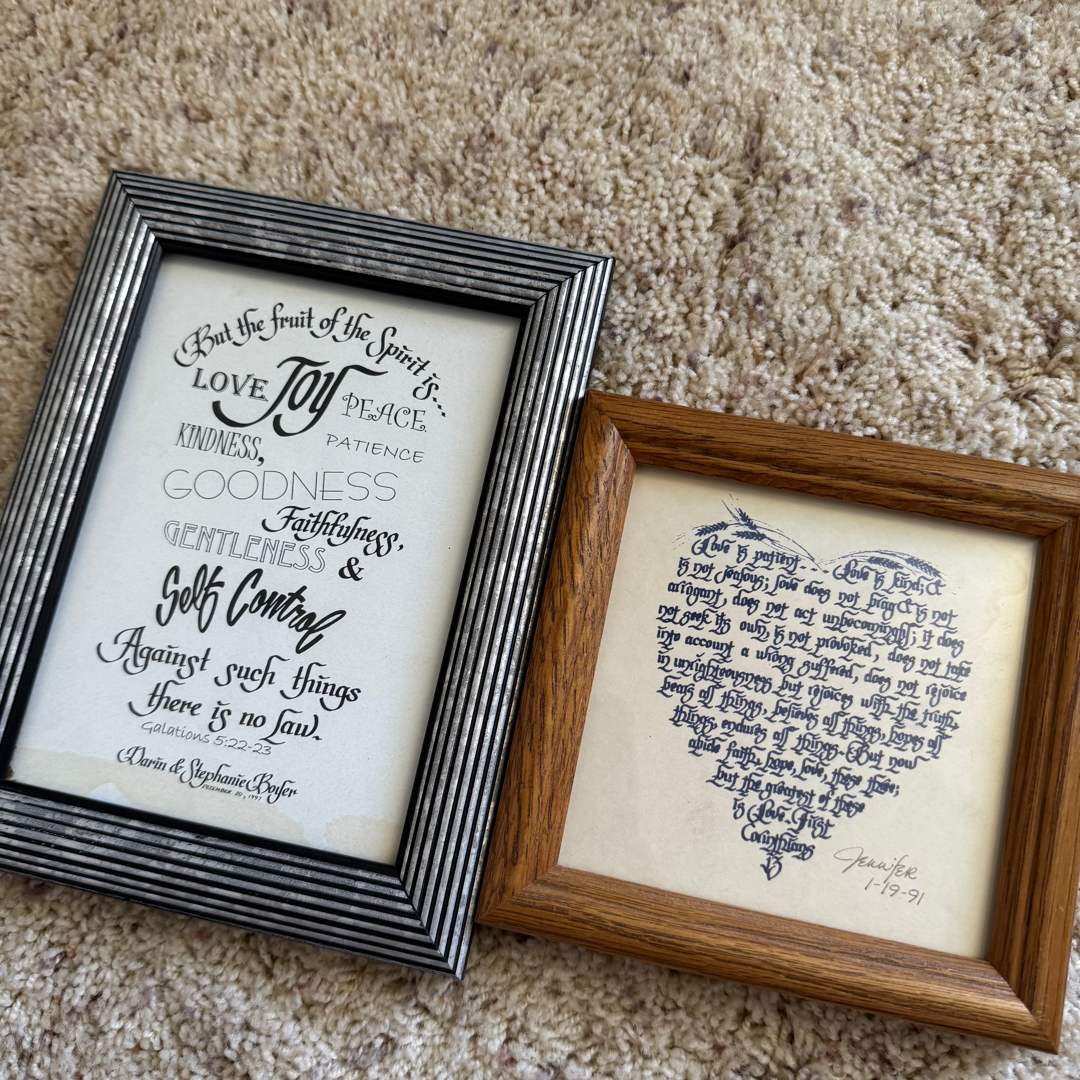 But the fruit of the Spirit is...
LOVE JOY PEACE
KINDNESS, PATIENCE
GOODNESS
Faithfulness,
GENTLENESS &
Self Control
Against such things
there is no law.
Galations 5:22-23
Darin & Stephanie Boyer
DECEMBER 20, 1997
Love is patient... Love is kind; &
is not jealous; love does not brag & is not
arrogant, does not act unbecomingly; it does
not seek its own, is not provoked, does not take
into account a wrong suffered, does not rejoice
in unrighteousness but rejoices with the truth,
bears all things, believes all things, hopes all
things, endures all things. But now
abide faith, hope, love, these three;
but the greatest of these
is Love. First
Corinthians
13
Jennifer
1-19-91